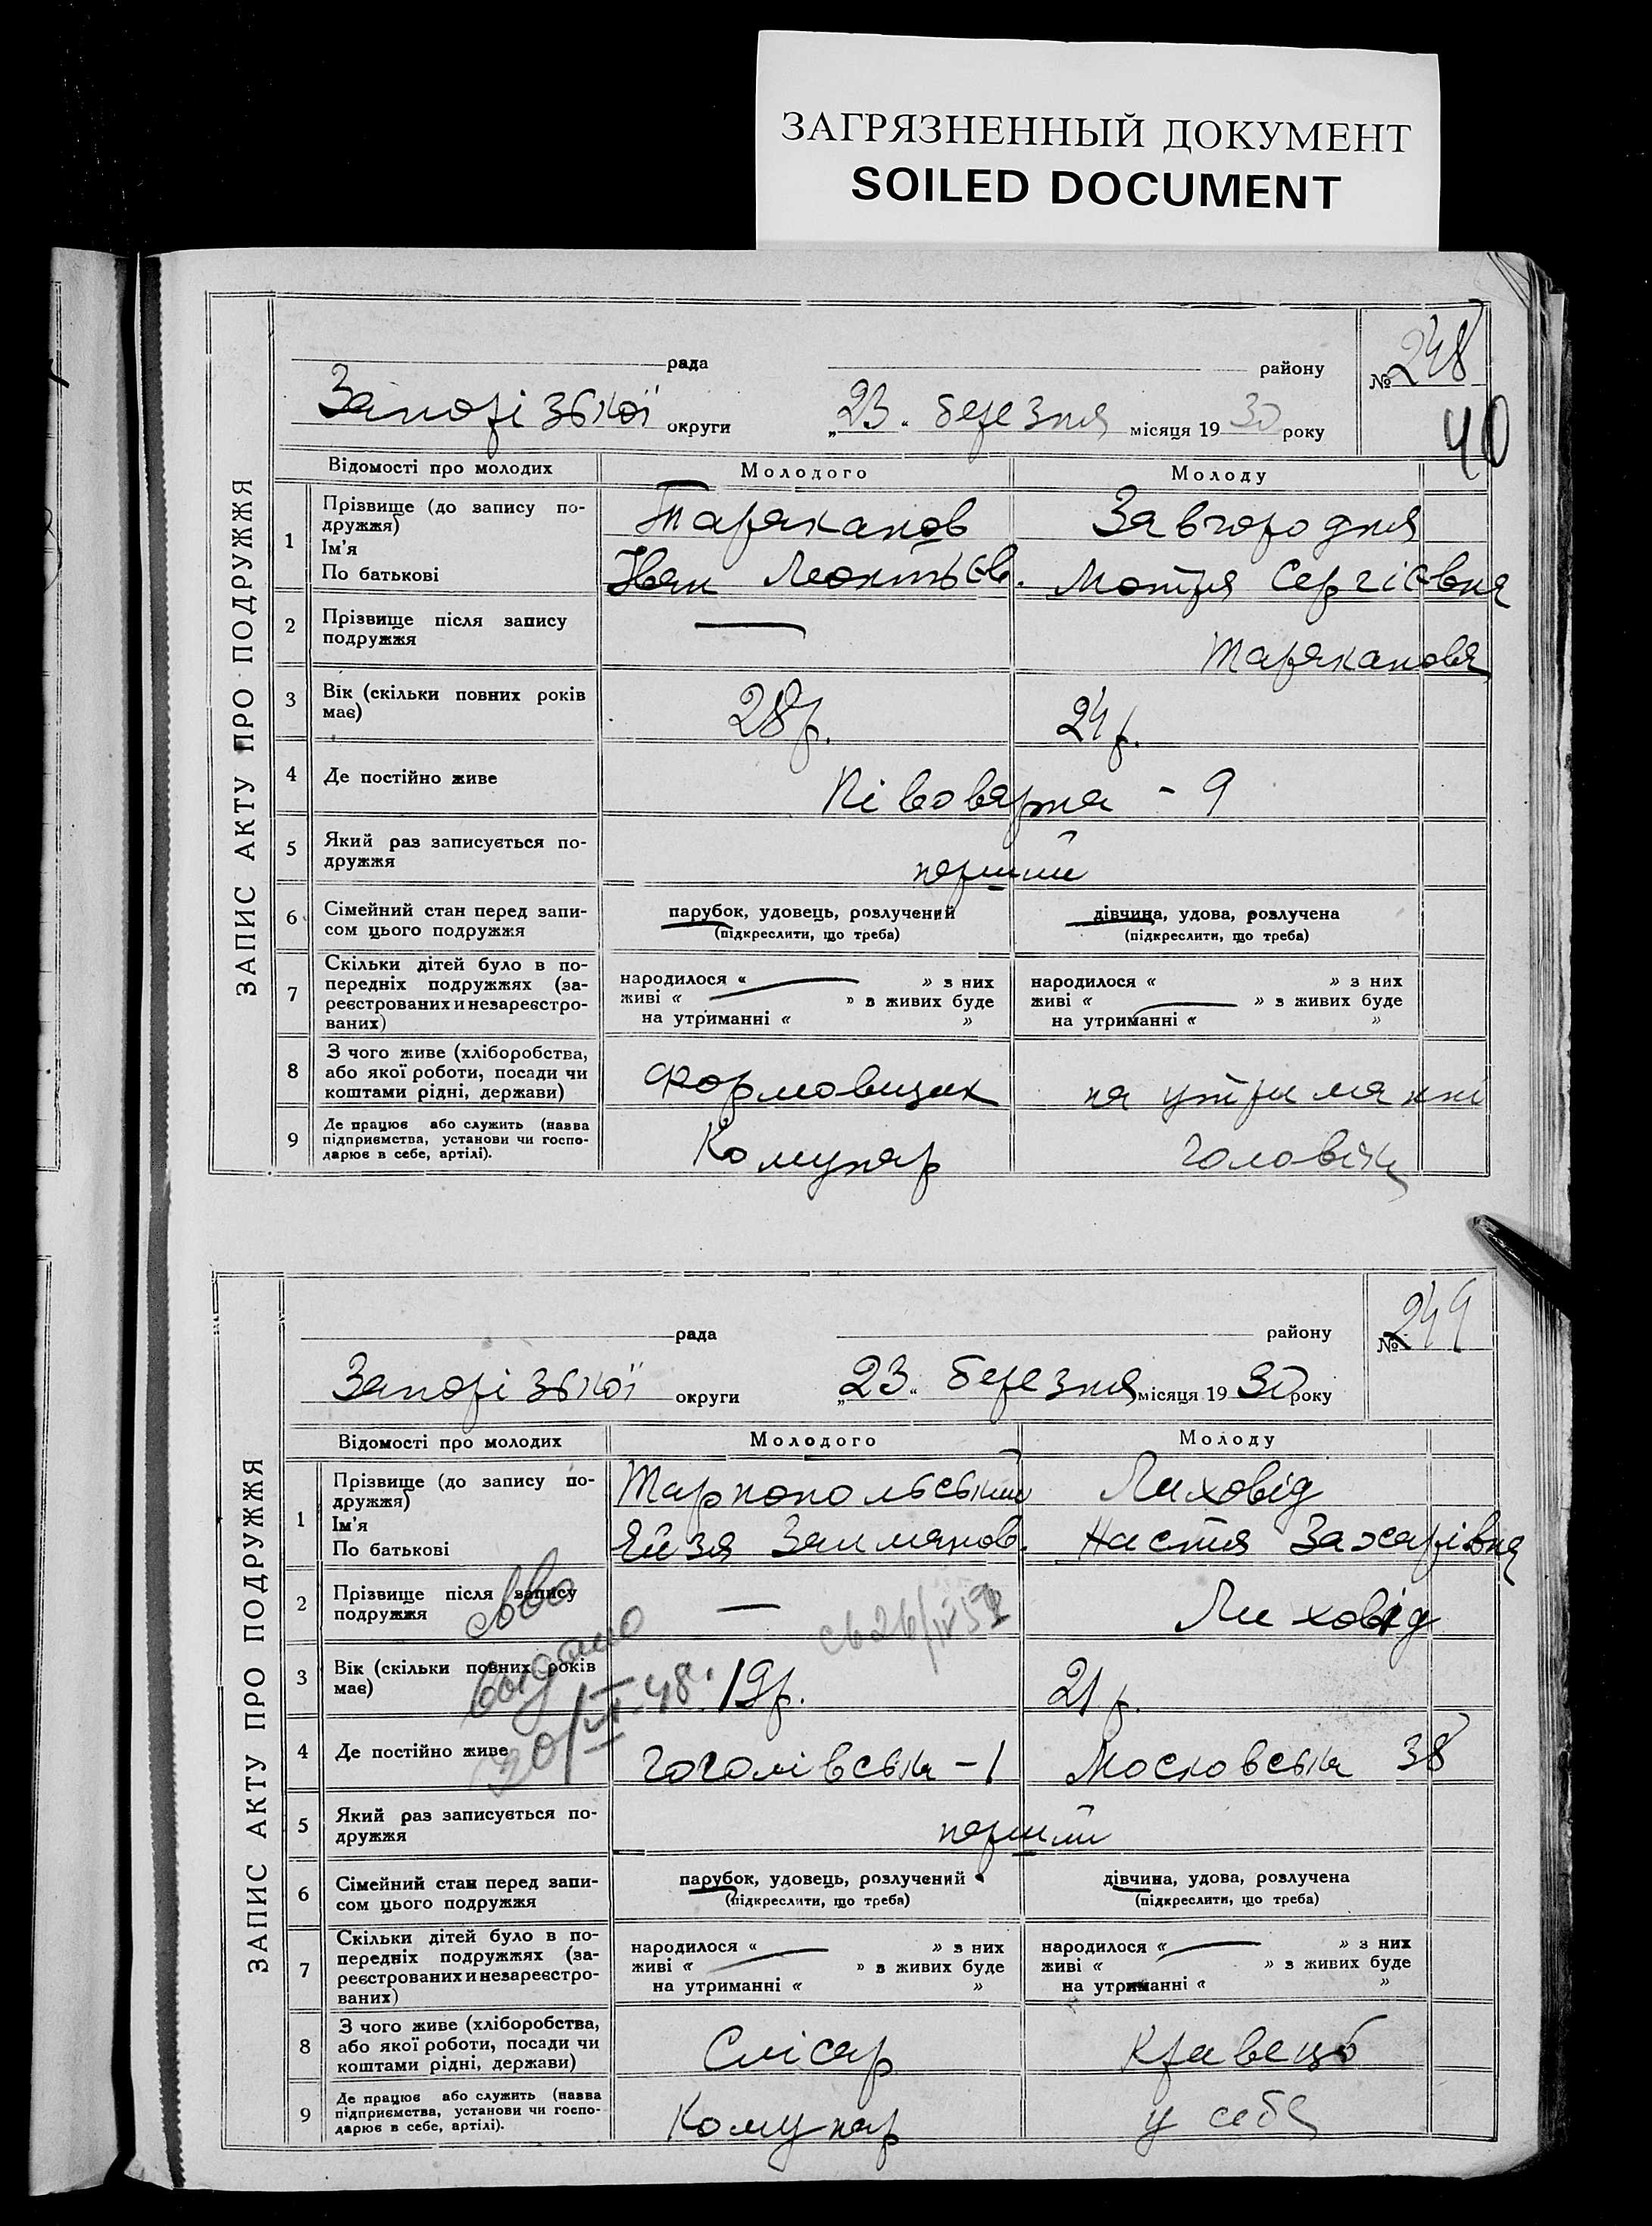 ЗАГРЯЗНЕННЫЙ ДОКУМЕНТ
SOILED DOCUMENT
ЗАПИС АКТУ ПРО ПОДРУЖЖЯ
рада району № 248
Запорізької округи „23“ березня місяця 1930 року
40
Відомості про молодих Молодого Молоду
1 Прізвище (до запису по-
дружжя)
Ім'я
По батькові
Тараканов Завгородня
Іван Леонтьєв. Мотря Сергієвна
2 Прізвище після запису
подружжя
— Тараканова
3 Вік (скільки повних років
має)
28 р. 24 р.
4 Де постійно живе Півоварна - 9
5 Який раз записується по-
дружжя
перший
6 Сімейний стан перед запи-
сом цього подружжя
парубок, удовець, розлучений
(підкреслити, що треба)
дівчина, удова, розлучена
(підкреслити, що треба)
7 Скільки дітей було в по-
передніх подружжях (за-
реєстрованих и незареєстро-
ваних)
народилося « » з них
живі « » з живих буде
на утриманні « »
народилося « » з них
живі « » з живих буде
на утриманні « »
8 З чого живе (хліборобства,
або якої роботи, посади чи
коштами рідні, держави)
Формовщик на утриманні
9 Де працює або служить (назва
підприємства, установи чи госпо-
дарює в себе, артілі).
Комунар чоловіка
ЗАПИС АКТУ ПРО ПОДРУЖЖЯ
рада району № 249
Запорізької округи „23“ березня місяця 1930 року
Відомості про молодих Молодого Молоду
1 Прізвище (до запису по-
дружжя)
Ім'я
По батькові
Тарнопольський Лиховід
Ейзя Залманов. Настя Захарівна
2 Прізвище після запису
подружжя
— Лиховід
св-во
видано
20/VI-48.
3 Вік (скільки повних років
має)
19 р. 21 р.
4 Де постійно живе Гоголівська - 1 Московська 38
5 Який раз записується по-
дружжя
перший
6 Сімейний стан перед запи-
сом цього подружжя
парубок, удовець, розлучений
(підкреслити, що треба)
дівчина, удова, розлучена
(підкреслити, що треба)
7 Скільки дітей було в по-
передніх подружжях (за-
реєстрованих и незареєстро-
ваних)
народилося « » з них
живі « » з живих буде
на утриманні « »
народилося « » з них
живі « » з живих буде
на утриманні « »
8 З чого живе (хліборобства,
або якої роботи, посади чи
коштами рідні, держави)
Слісар Кравець
9 Де працює або служить (назва
підприємства, установи чи госпо-
дарює в себе, артілі).
Комунар у себе